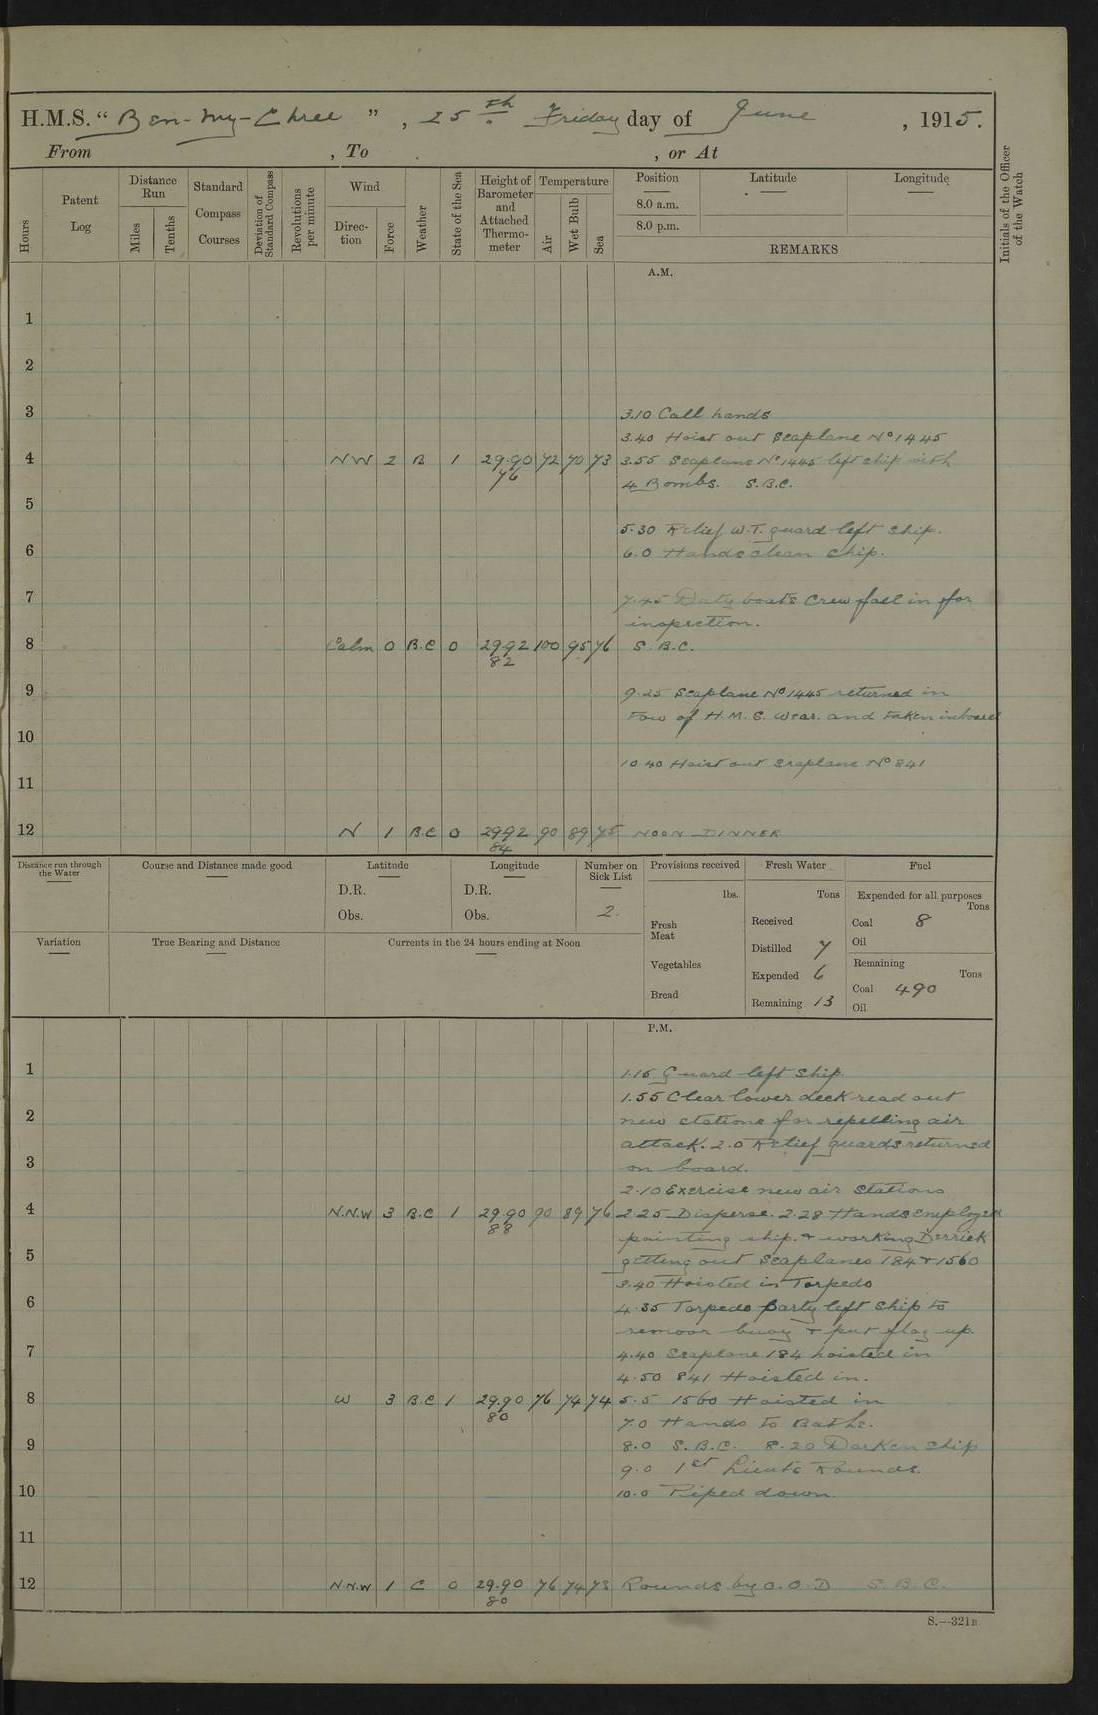 H.M.S. “ Ben-my-Chree ” , 25th Friday day of June , 1915.
From , To , or At
Hours
Patent Log
Distance Run
Miles
Tenths
Standard Compass Courses
Deviation of Standard Compass
Revolutions per minute
Wind
Direction
Force
Weather
State of the Sea
Height of Barometer and Attached Thermometer
Temperature
Air
Wet Bulb
Sea
Position
8.0 a.m.
8.0 p.m.
Latitude
Longitude
REMARKS
Initials of the Officer of the Watch
A.M.
1
2
3 3.10 Call hands
3.40 Hoist out Seaplane No 1445
4 NW 2 B 1 29.90 72 70 73 3.55 Seaplane No 1445 left ship with
76 4 Bombs. S.B.C.
5
5.30 Relief W.T. guard left ship.
6 6.0 Hands clean ship.
7 7.45 Duty boats crew fall in for
inspection.
8 Calm 0 B.C 0 2992 100 95 76 S.B.C.
82
9 9.25 Seaplane No 1445 returned in
Tow of H.M.S. Wear. and taken inboard
10
10.40 Hoist out Seaplane No 841
11
12 N 1 B.C 0 2992 90 89 75 NOON DINNER
84
Distance run through the Water
Course and Distance made good
Latitude
D.R.
Obs.
Longitude
D.R.
Obs.
Number on Sick List
2.
Provisions received
lbs.
Fresh Meat
Vegetables
Bread
Fresh Water
Tons
Received
Distilled 7
Expended 6
Remaining 13
Fuel
Expended for all purposes
Tons
Coal 8
Oil
Remaining
Tons
Coal 490
Oil
Variation
True Bearing and Distance
Currents in the 24 hours ending at Noon
P.M.
1 1.15 Guard left ship.
1.55 Clear lower deck read out
2 new stations for repelling air
attack. 2.0 Relief guards returned
3 on board.
2.10 Exercise new air stations
4 N.N.W 3 B.C 1 29.90 90 89 76 2.25 Disperse. 2.28 Hands employed
88 painting ship. & working Derrick
5 getting out Seaplanes 184 & 1560
3.40 Hoisted in Torpedo
6 4.35 Torpedo party left ship to
remoor buoy & put flag up.
7 4.40 Seaplane 184 hoisted in
4.50 841 Hoisted in.
8 W 3 B.C 1 29.90 76 74 74 5.5 1560 Hoisted in
80 7.0 Hands to Bathe.
9 8.0 S.B.C. 8.20 Darken ship
9.0 1st Lieuts Rounds.
10 10.0 Piped down.
11
12 N.N.W 1 C 0 29.90 76 74 73 Rounds by O.O.D S.B.C.
80
S.—321B